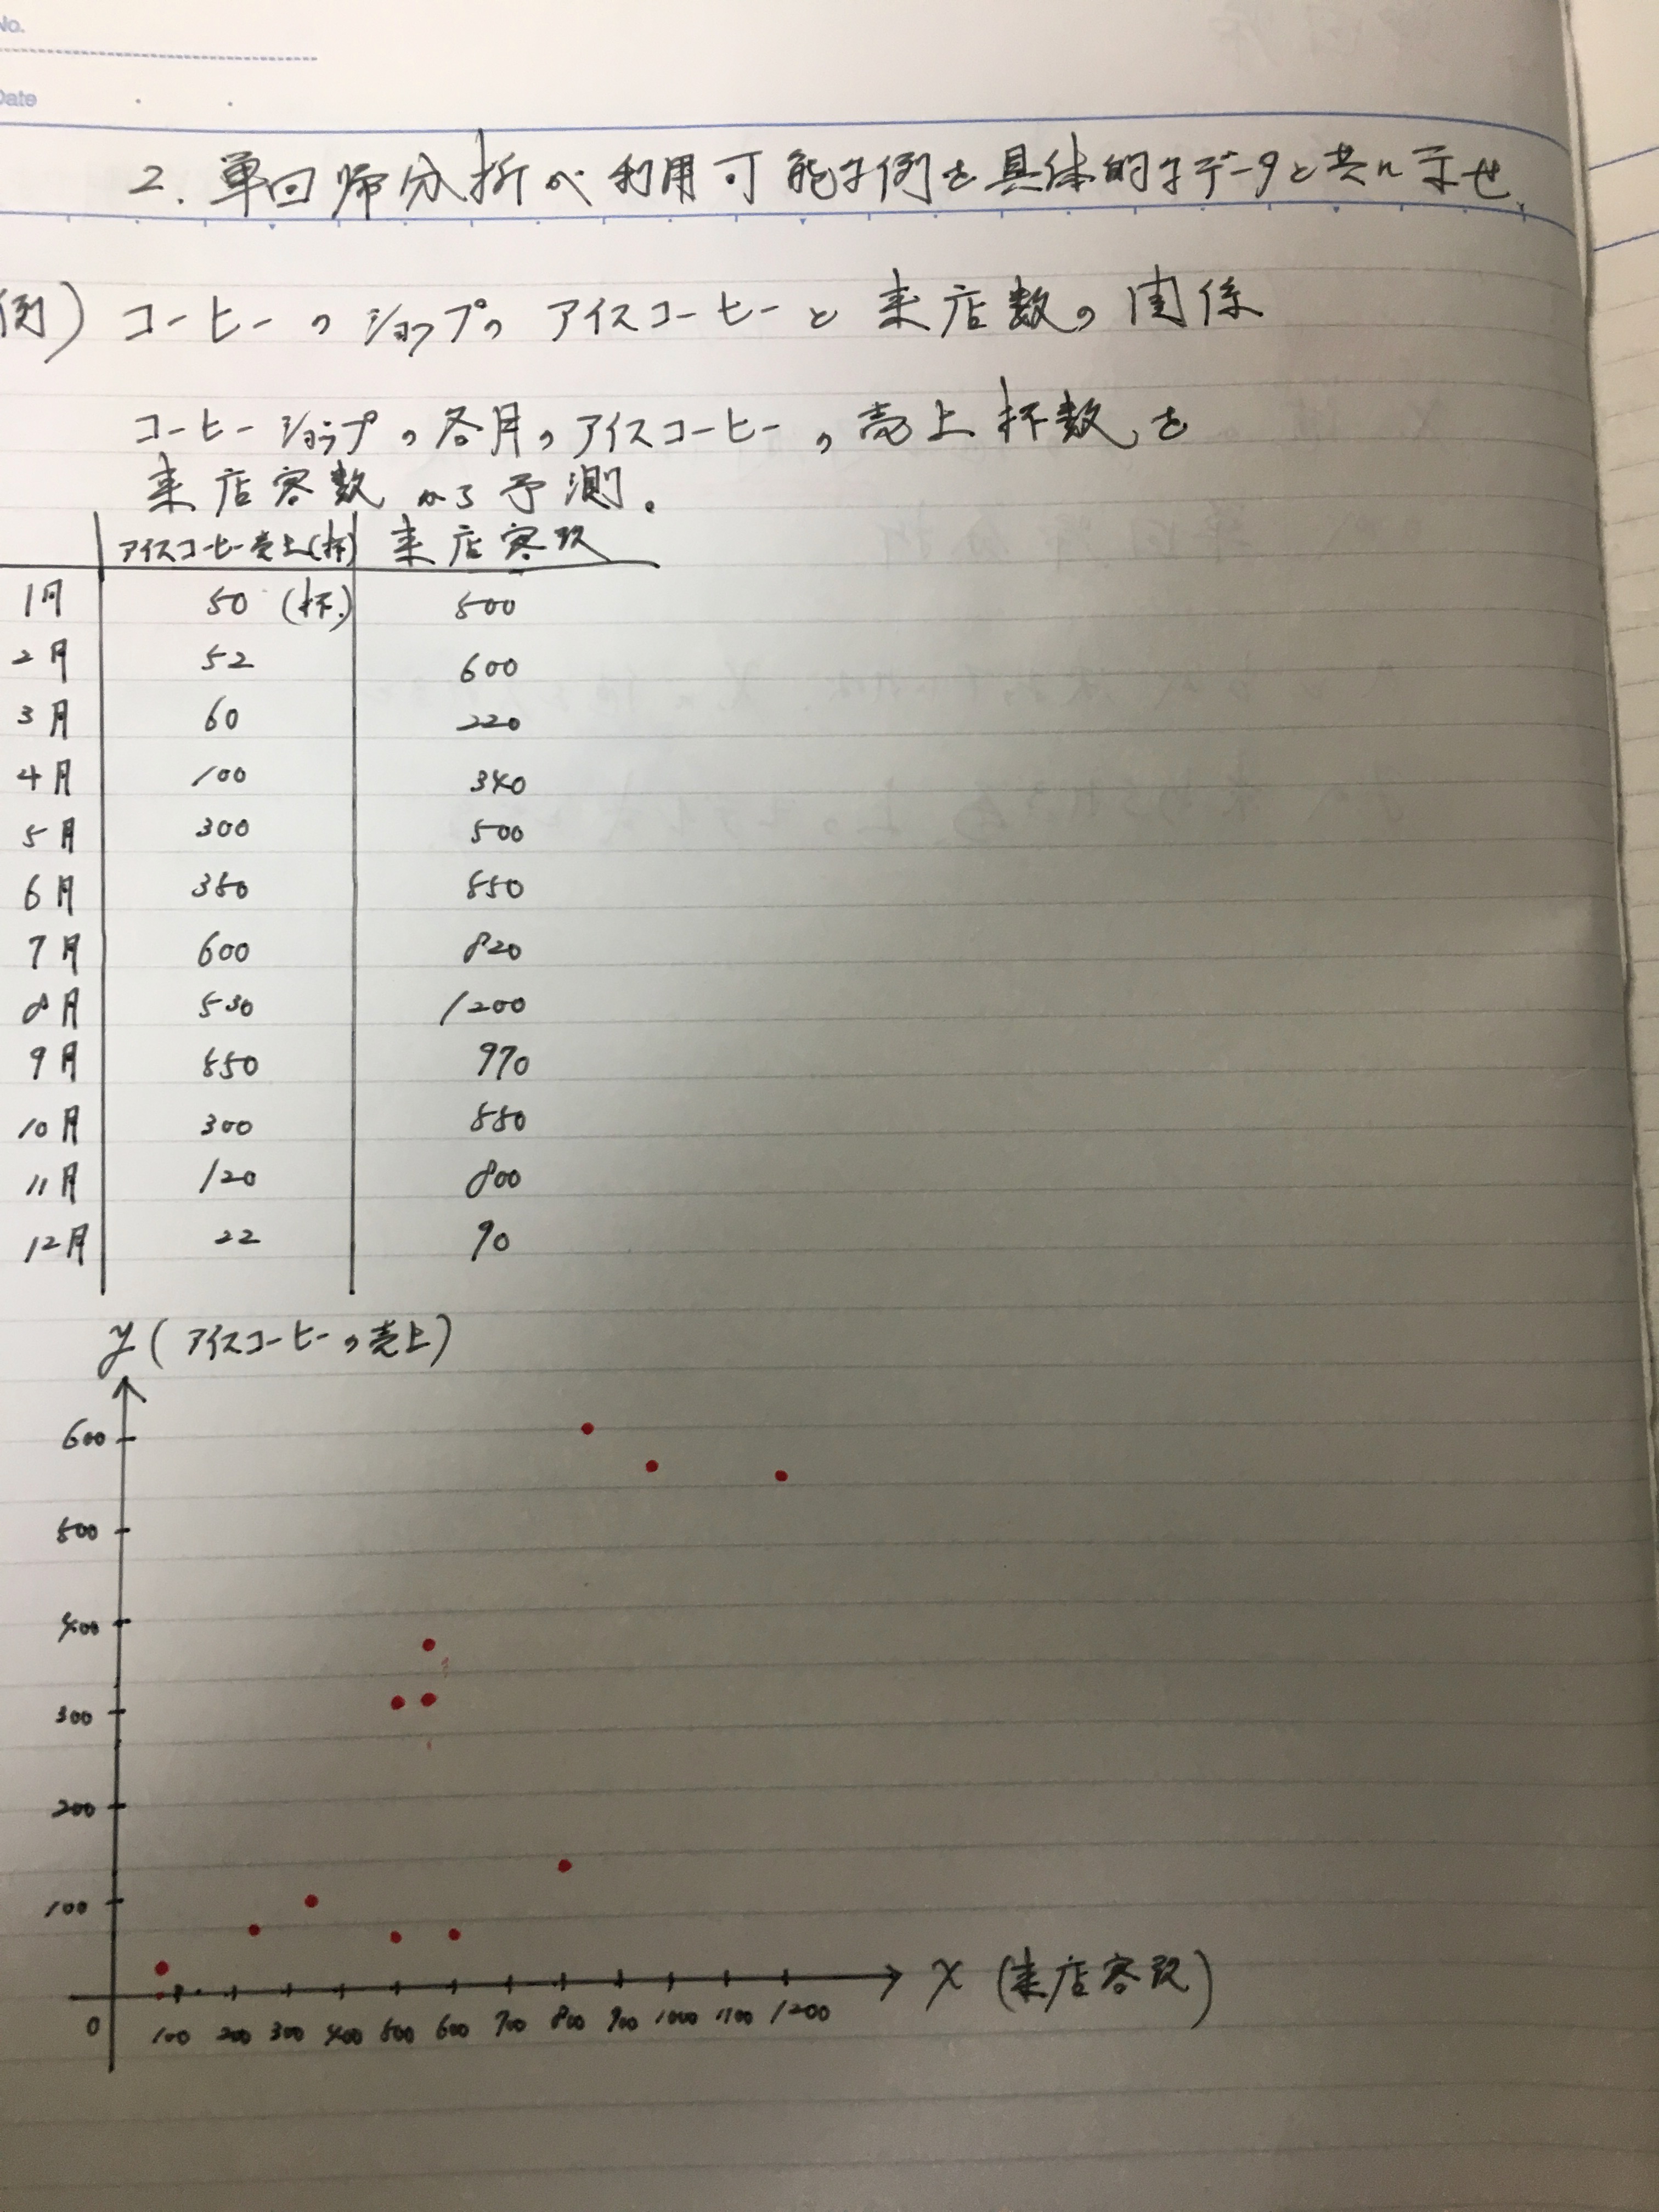 No.
Date
2. 単回帰分析が利用可能な例を具体的なデータと共に示せ.
例) コーヒーのショップのアイスコーヒーと来店数の関係
コーヒーショップの各月のアイスコーヒーの売上杯数を
来店客数から予測。
アイスコーヒー売上(杯) 来店客数
1月 50 (杯) 500
2月 52 600
3月 60 220
4月 100 340
5月 300 500
6月 380 550
7月 600 820
8月 530 1200
9月 550 970
10月 300 580
11月 120 800
12月 22 90
y (アイスコーヒーの売上)
600
500
400
300
200
100
0 100 200 300 400 500 600 700 800 900 1000 1100 1200
x (来店客数)